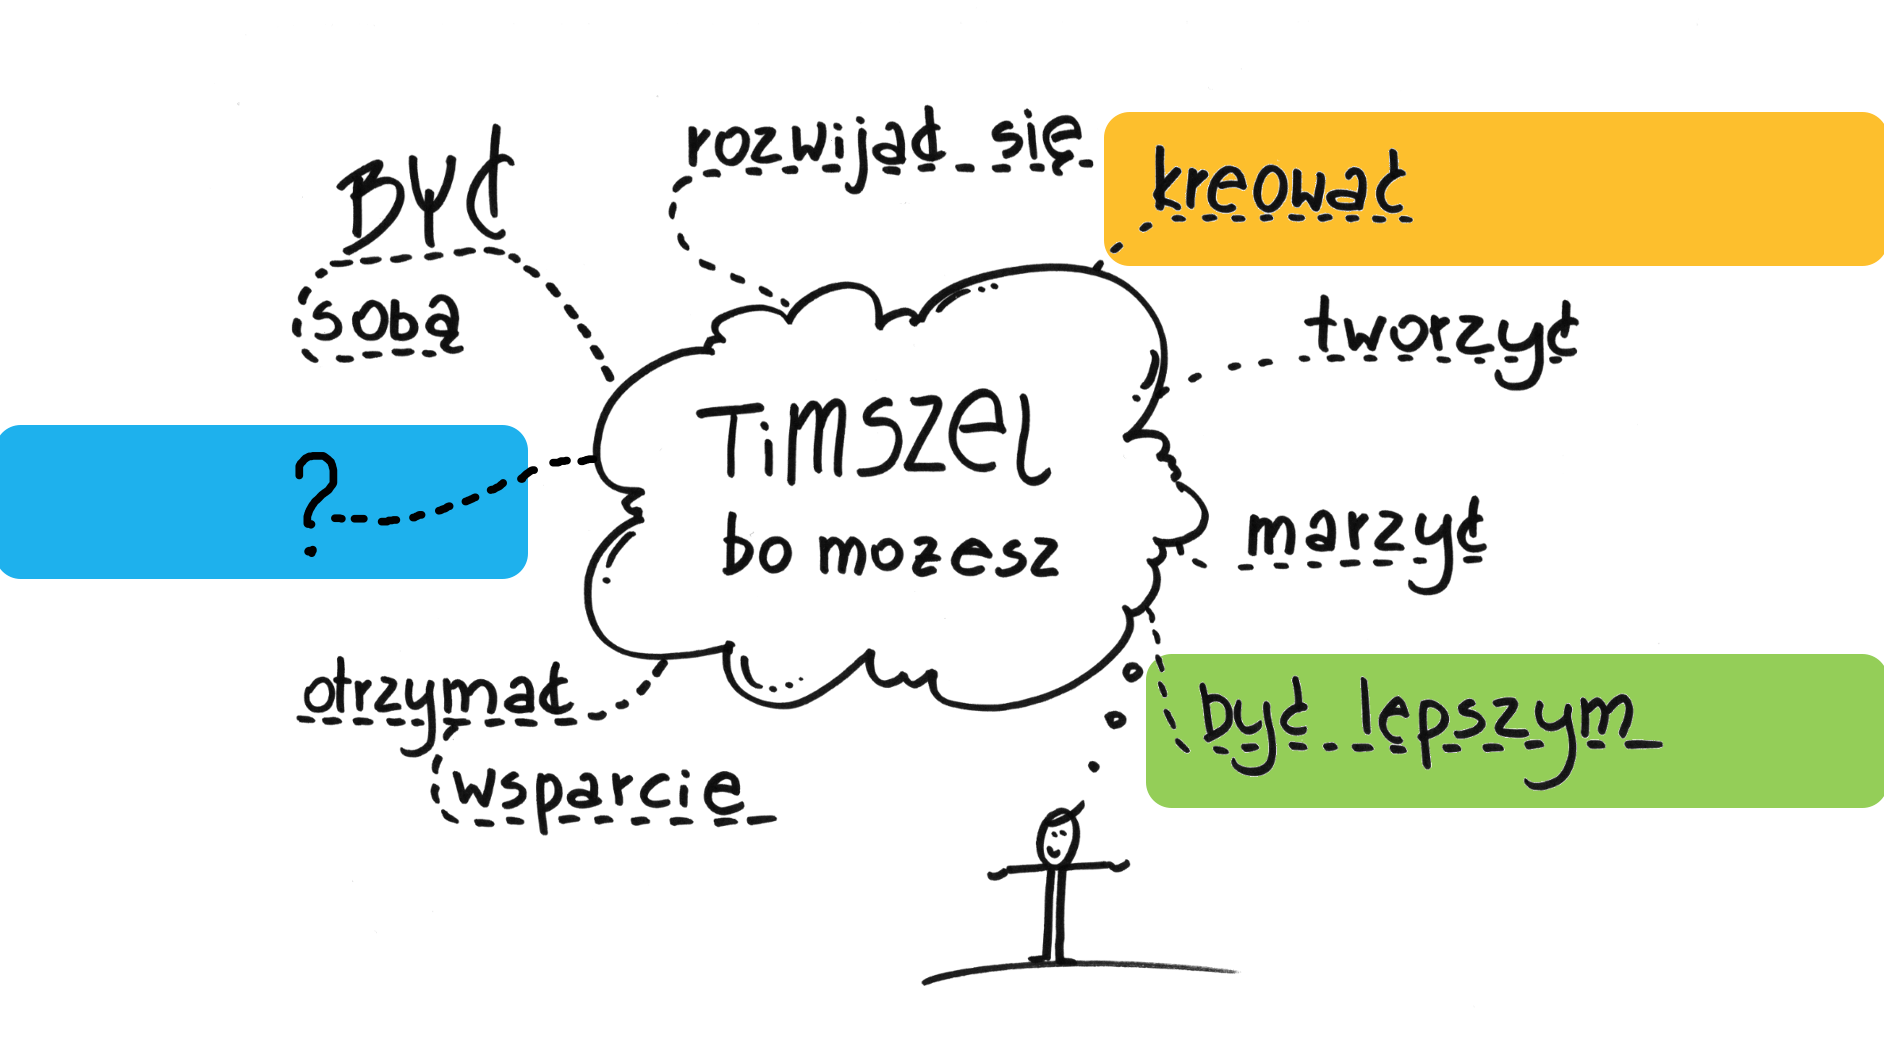 BYĆ
sobą
rozwijać się
kreować
tworzyć
?
Timszel
bo możesz
marzyć
otrzymać
wsparcie
być lepszym